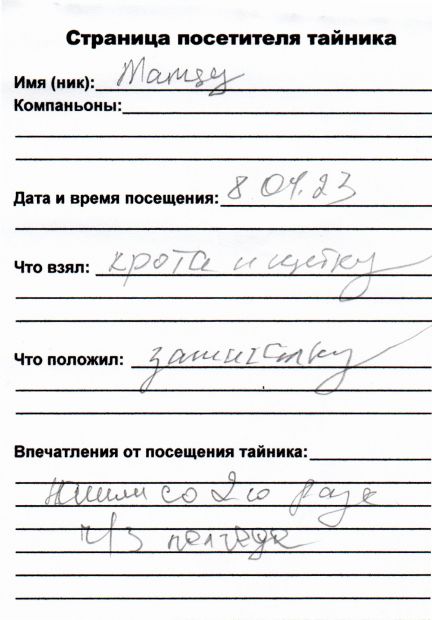 Страница посетителя тайника
Имя (ник):
Компаньоны:
Дата и время посещения: 8 04.23
Что взял: крота и щётку
Что положил: зажигалку
Впечатления от посещения тайника:
нашли со 2го раза
ч/з полгода